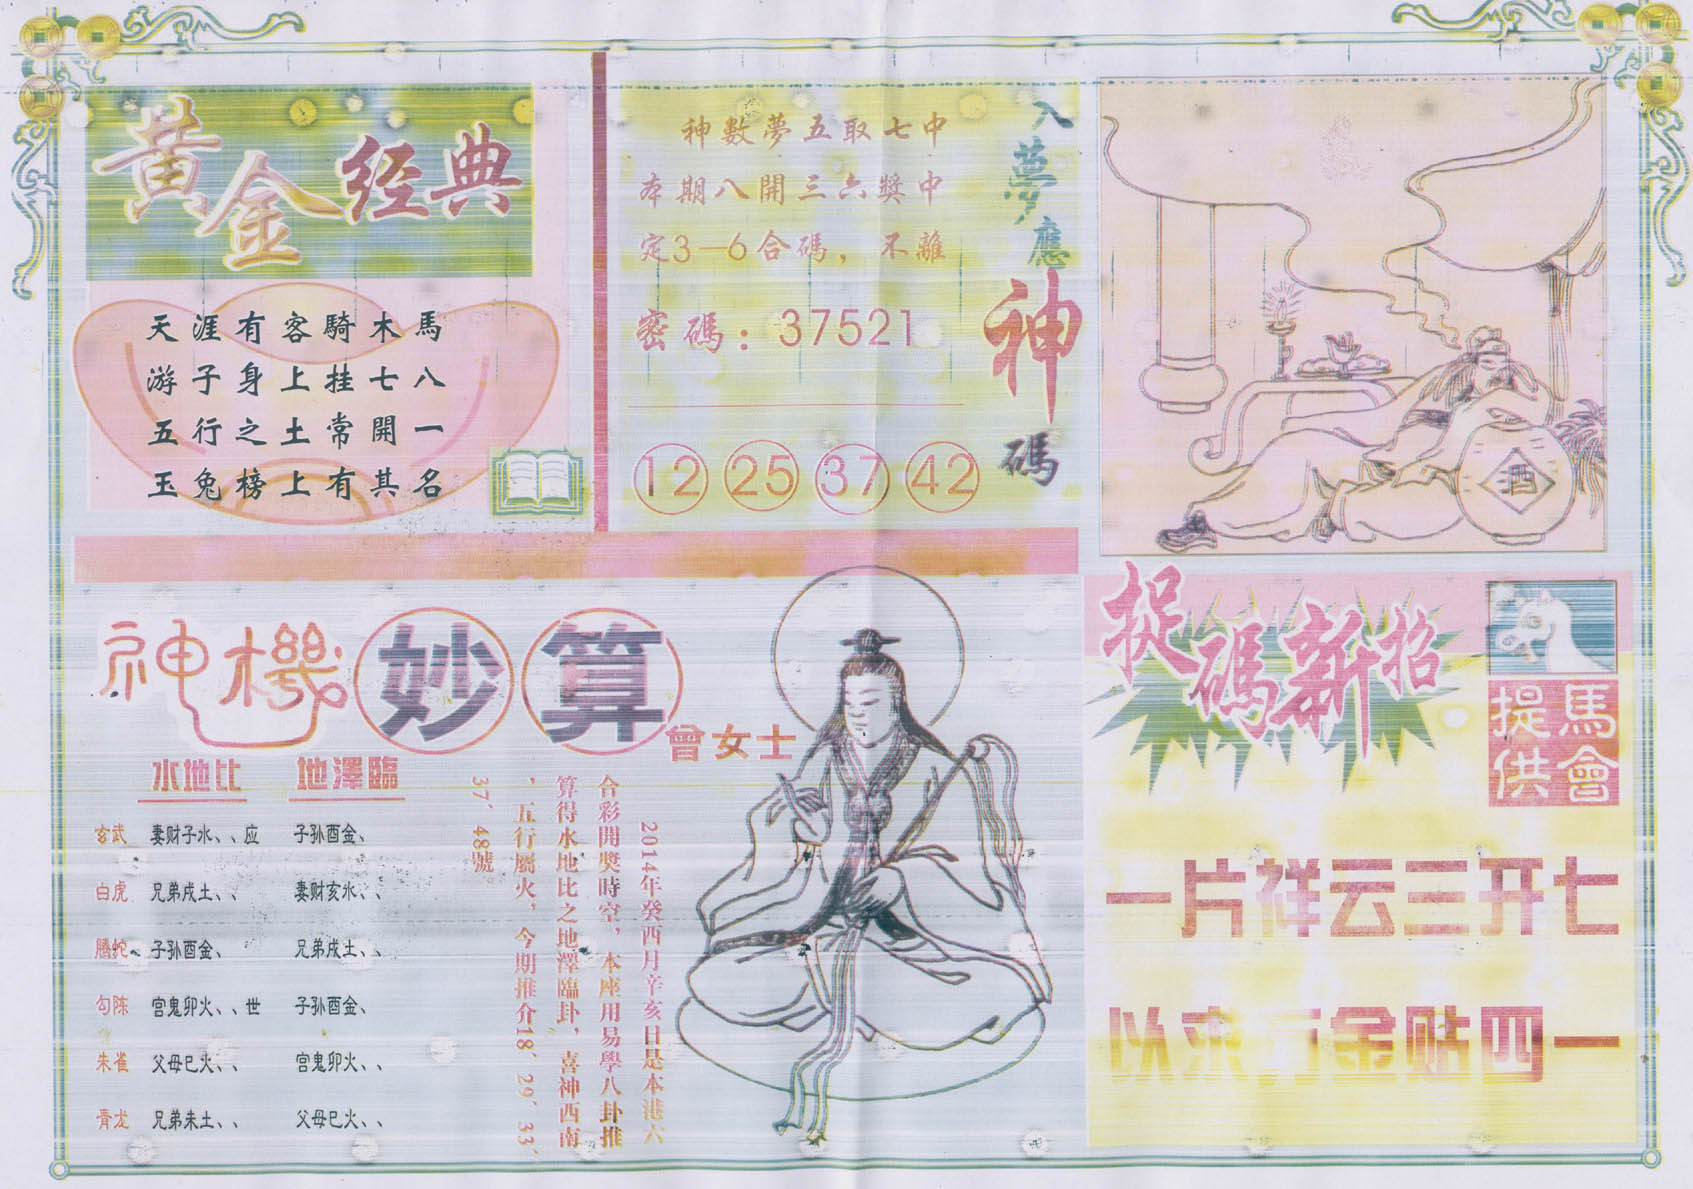 黄金经典
天涯有客騎木馬
游子身上挂七八
五行之土常開一
玉兔榜上有其名
入夢應神碼
神數夢五取七中
本期八開三六獎中
定3—6合碼，不離
密碼：37521
12 25 37 42
酒
神機妙算
曾女士
水地比 地澤臨
玄武 妻财子水、、应 子孙酉金、
白虎 兄弟戌土、、 妻财亥水、、
騰蛇 子孙酉金、 兄弟戌土、、
勾陈 官鬼卯火、、世 子孙酉金、
朱雀 父母巳火、、 官鬼卯火、、
青龙 兄弟未土、、 父母巳火、、
2014年癸酉月辛亥日是本港六
合彩開奖時空，本座用易學八卦推
算得水地比之地澤臨卦，喜神西南
，五行屬火，今期推介18、29、33、
37、48號。
捉碼新招
馬會
提供
一片祥云三开七
金贴四一